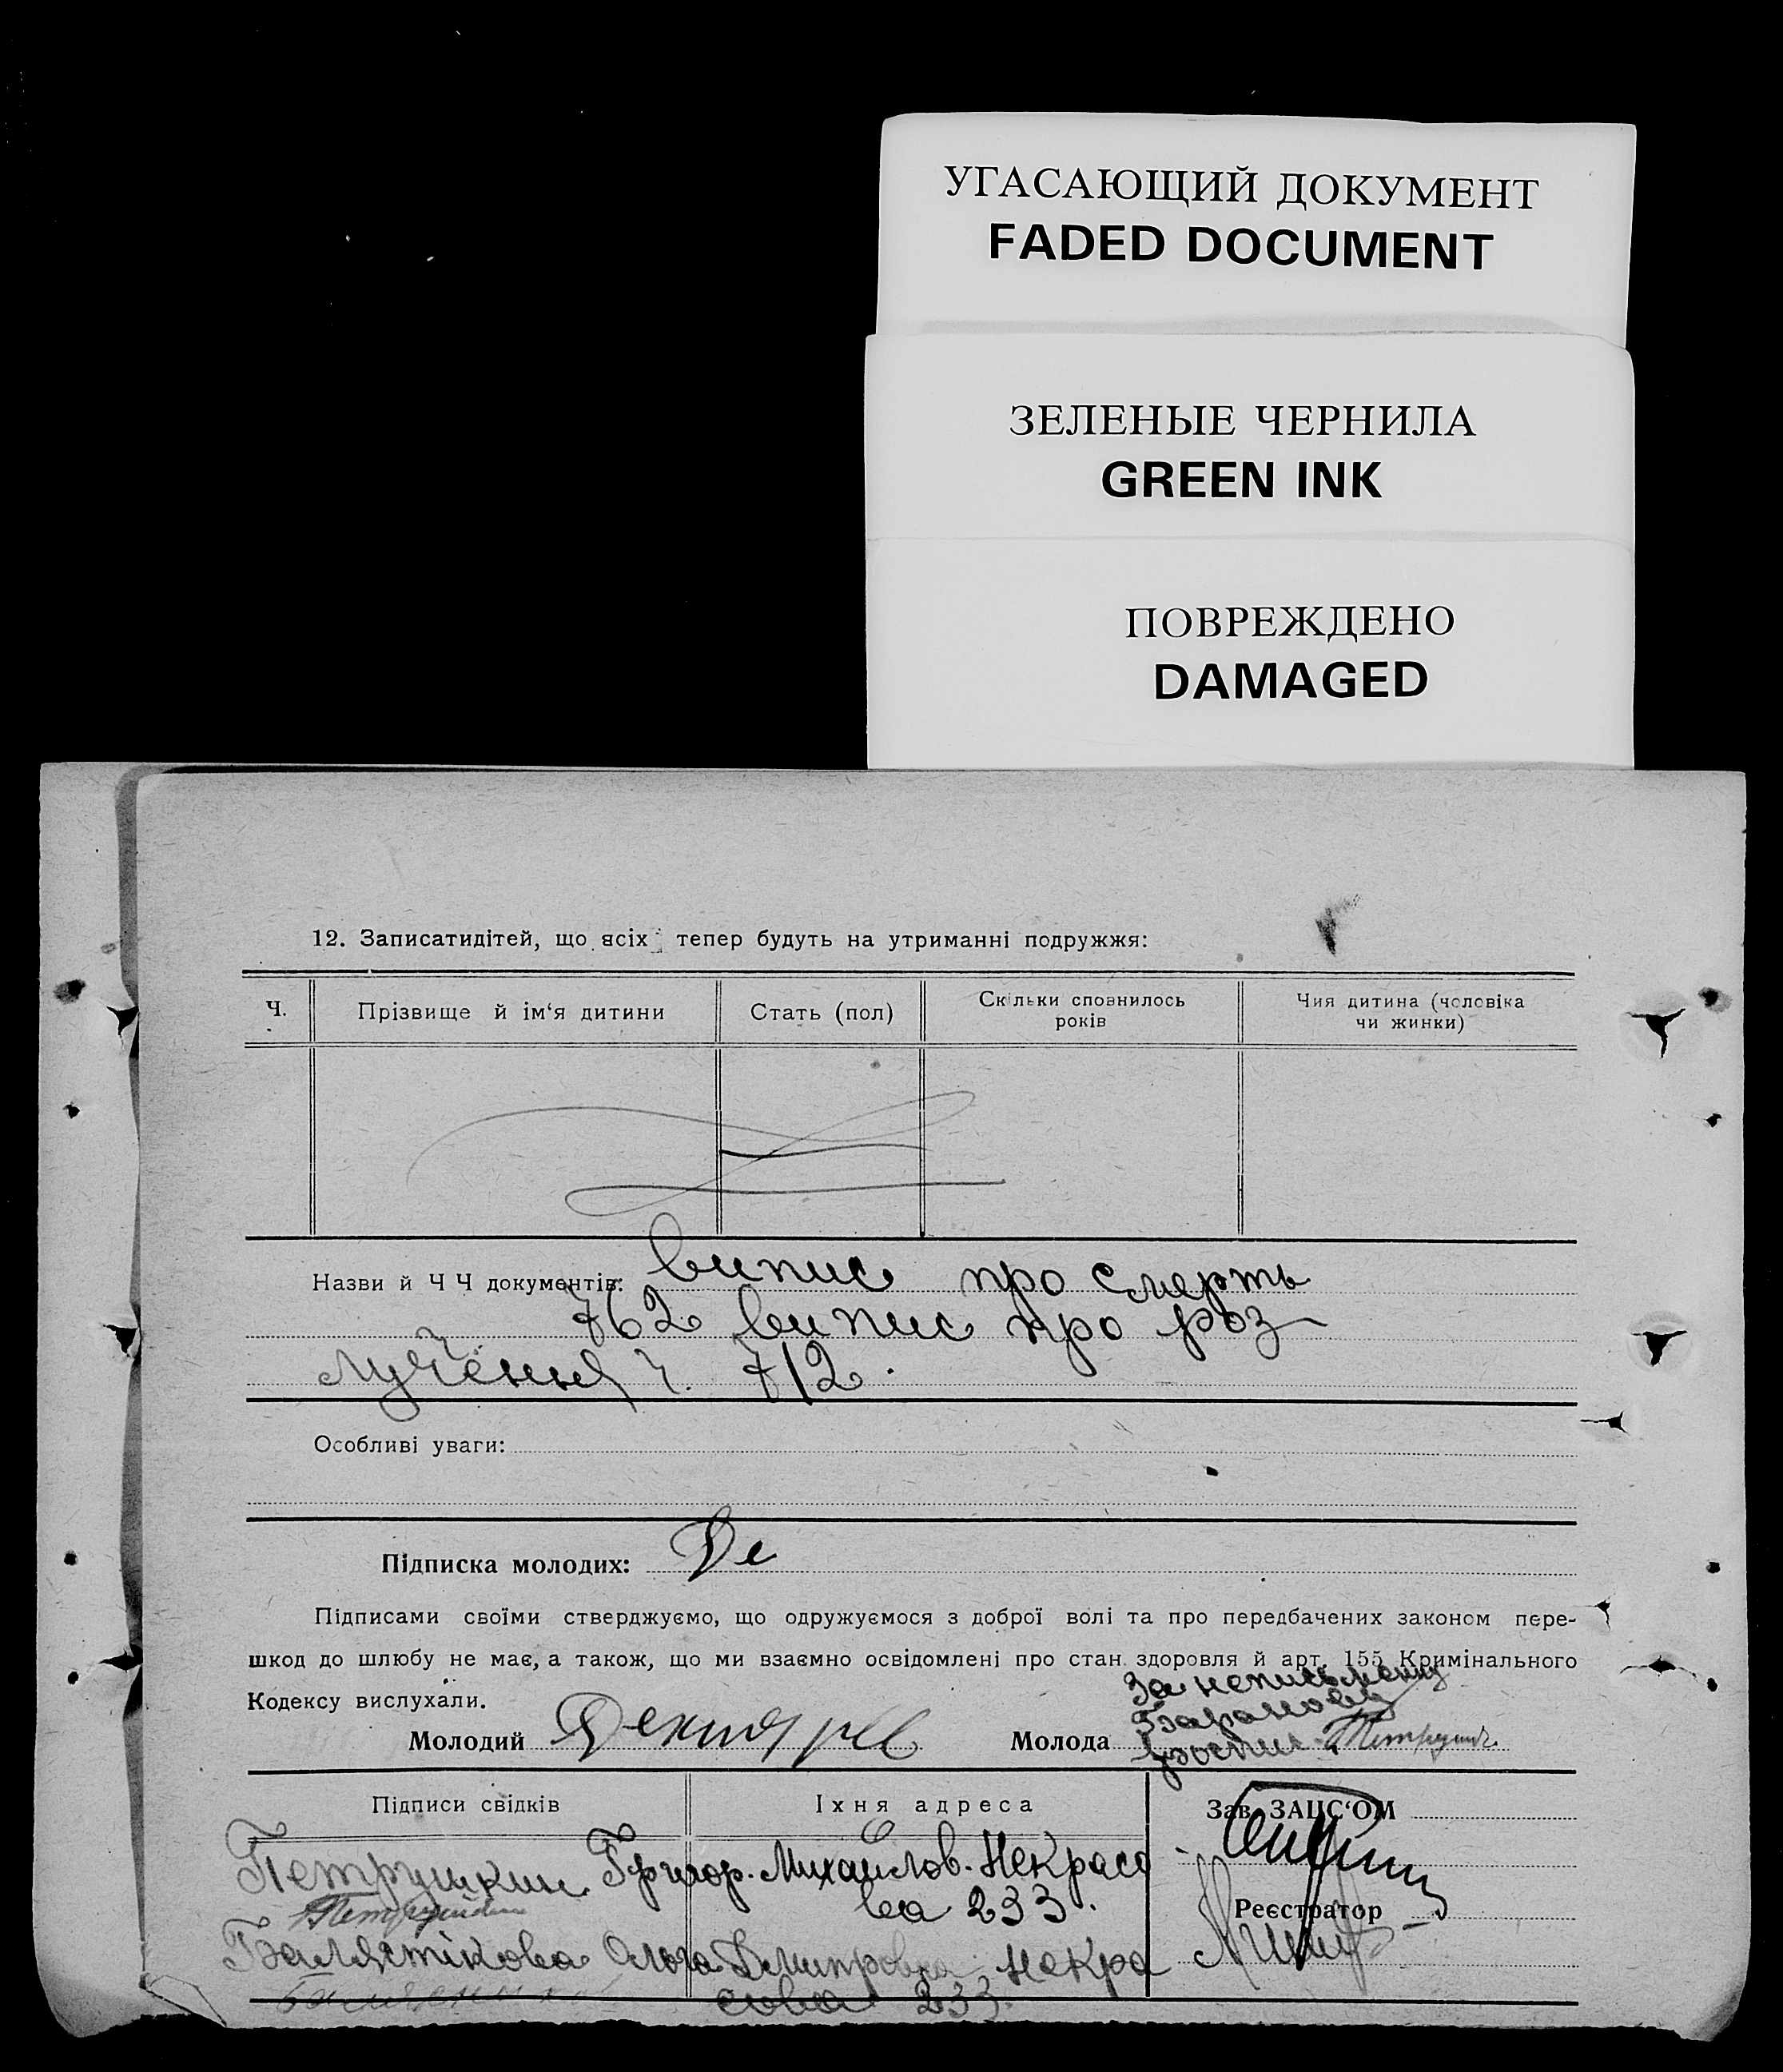 УГАСАЮЩИЙ ДОКУМЕНТ
FADED DOCUMENT
ЗЕЛЕНЫЕ ЧЕРНИЛА
GREEN INK
ПОВРЕЖДЕНО
DAMAGED
12. Записатидітей, що всіх тепер будуть на утриманні подружжя:
Ч.
Прізвище й ім‘я дитини
Стать (пол)
Скільки сповнилось
років
Чия дитина (чоловіка
чи жинки)
Назви й Ч Ч документів: випис про смерть
762 випис про роз
лучення ч. 712.
Особливі уваги:
Підписка молодих: Де
Підписами своїми стверджуємо, що одружуємося з доброї волі та про передбачених законом пере-
шкод до шлюбу не має, а також, що ми взаємно освідомлені про стан здоровля й арт. 155 Кримінального
Кодексу вислухали.
За неписьменну
Баранову
Молодий
Молода
Підписи свідків
Їхня адреса
Зав. ЗАЦС‘ОМ
Петрушкин Григор. Михайлов. Некрасо
ва 233.
Реєстратор
Ольга Дмитровна Некра
сова 233.